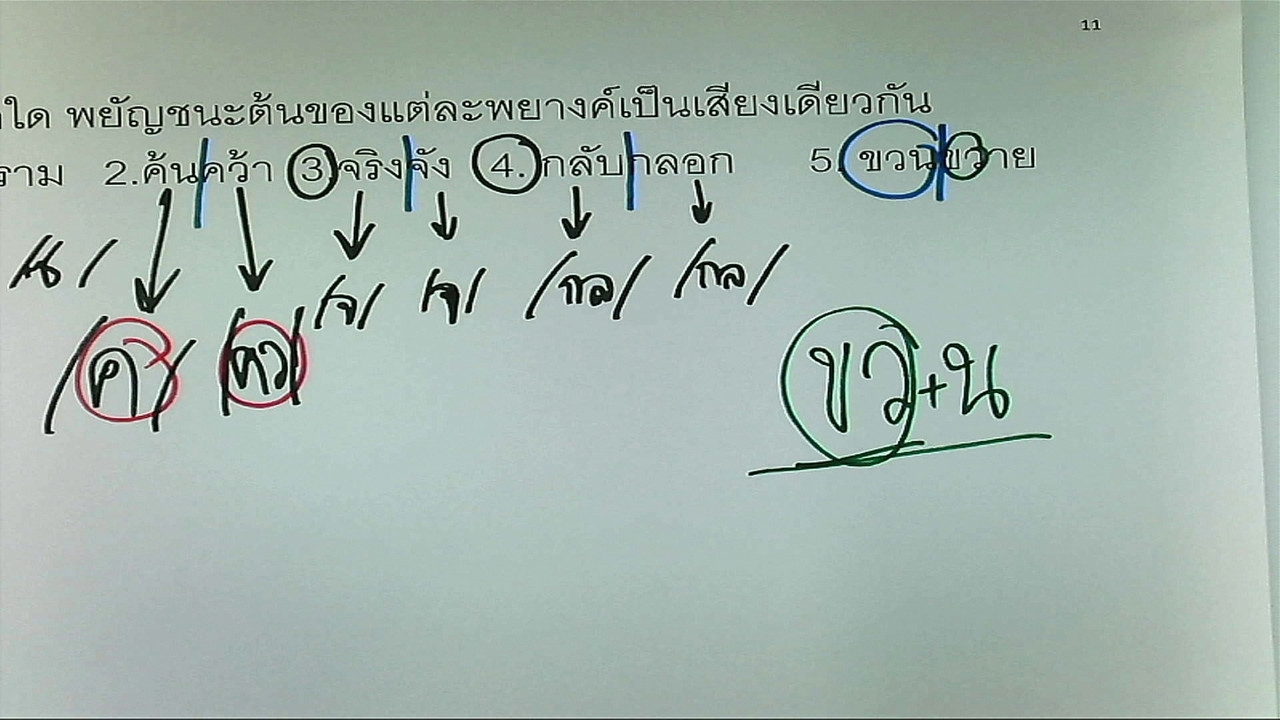 11
ใด พยัญชนะต้นของแต่ละพยางค์เป็นเสียงเดียวกัน
ราม 2.ค้นคว้า 3.จริงจัง 4.กลับกลอก 5. ขวนขวาย
/น/
/ค/ /คว/ /จ/ /จ/ /กล/ /กล/
ขว+น